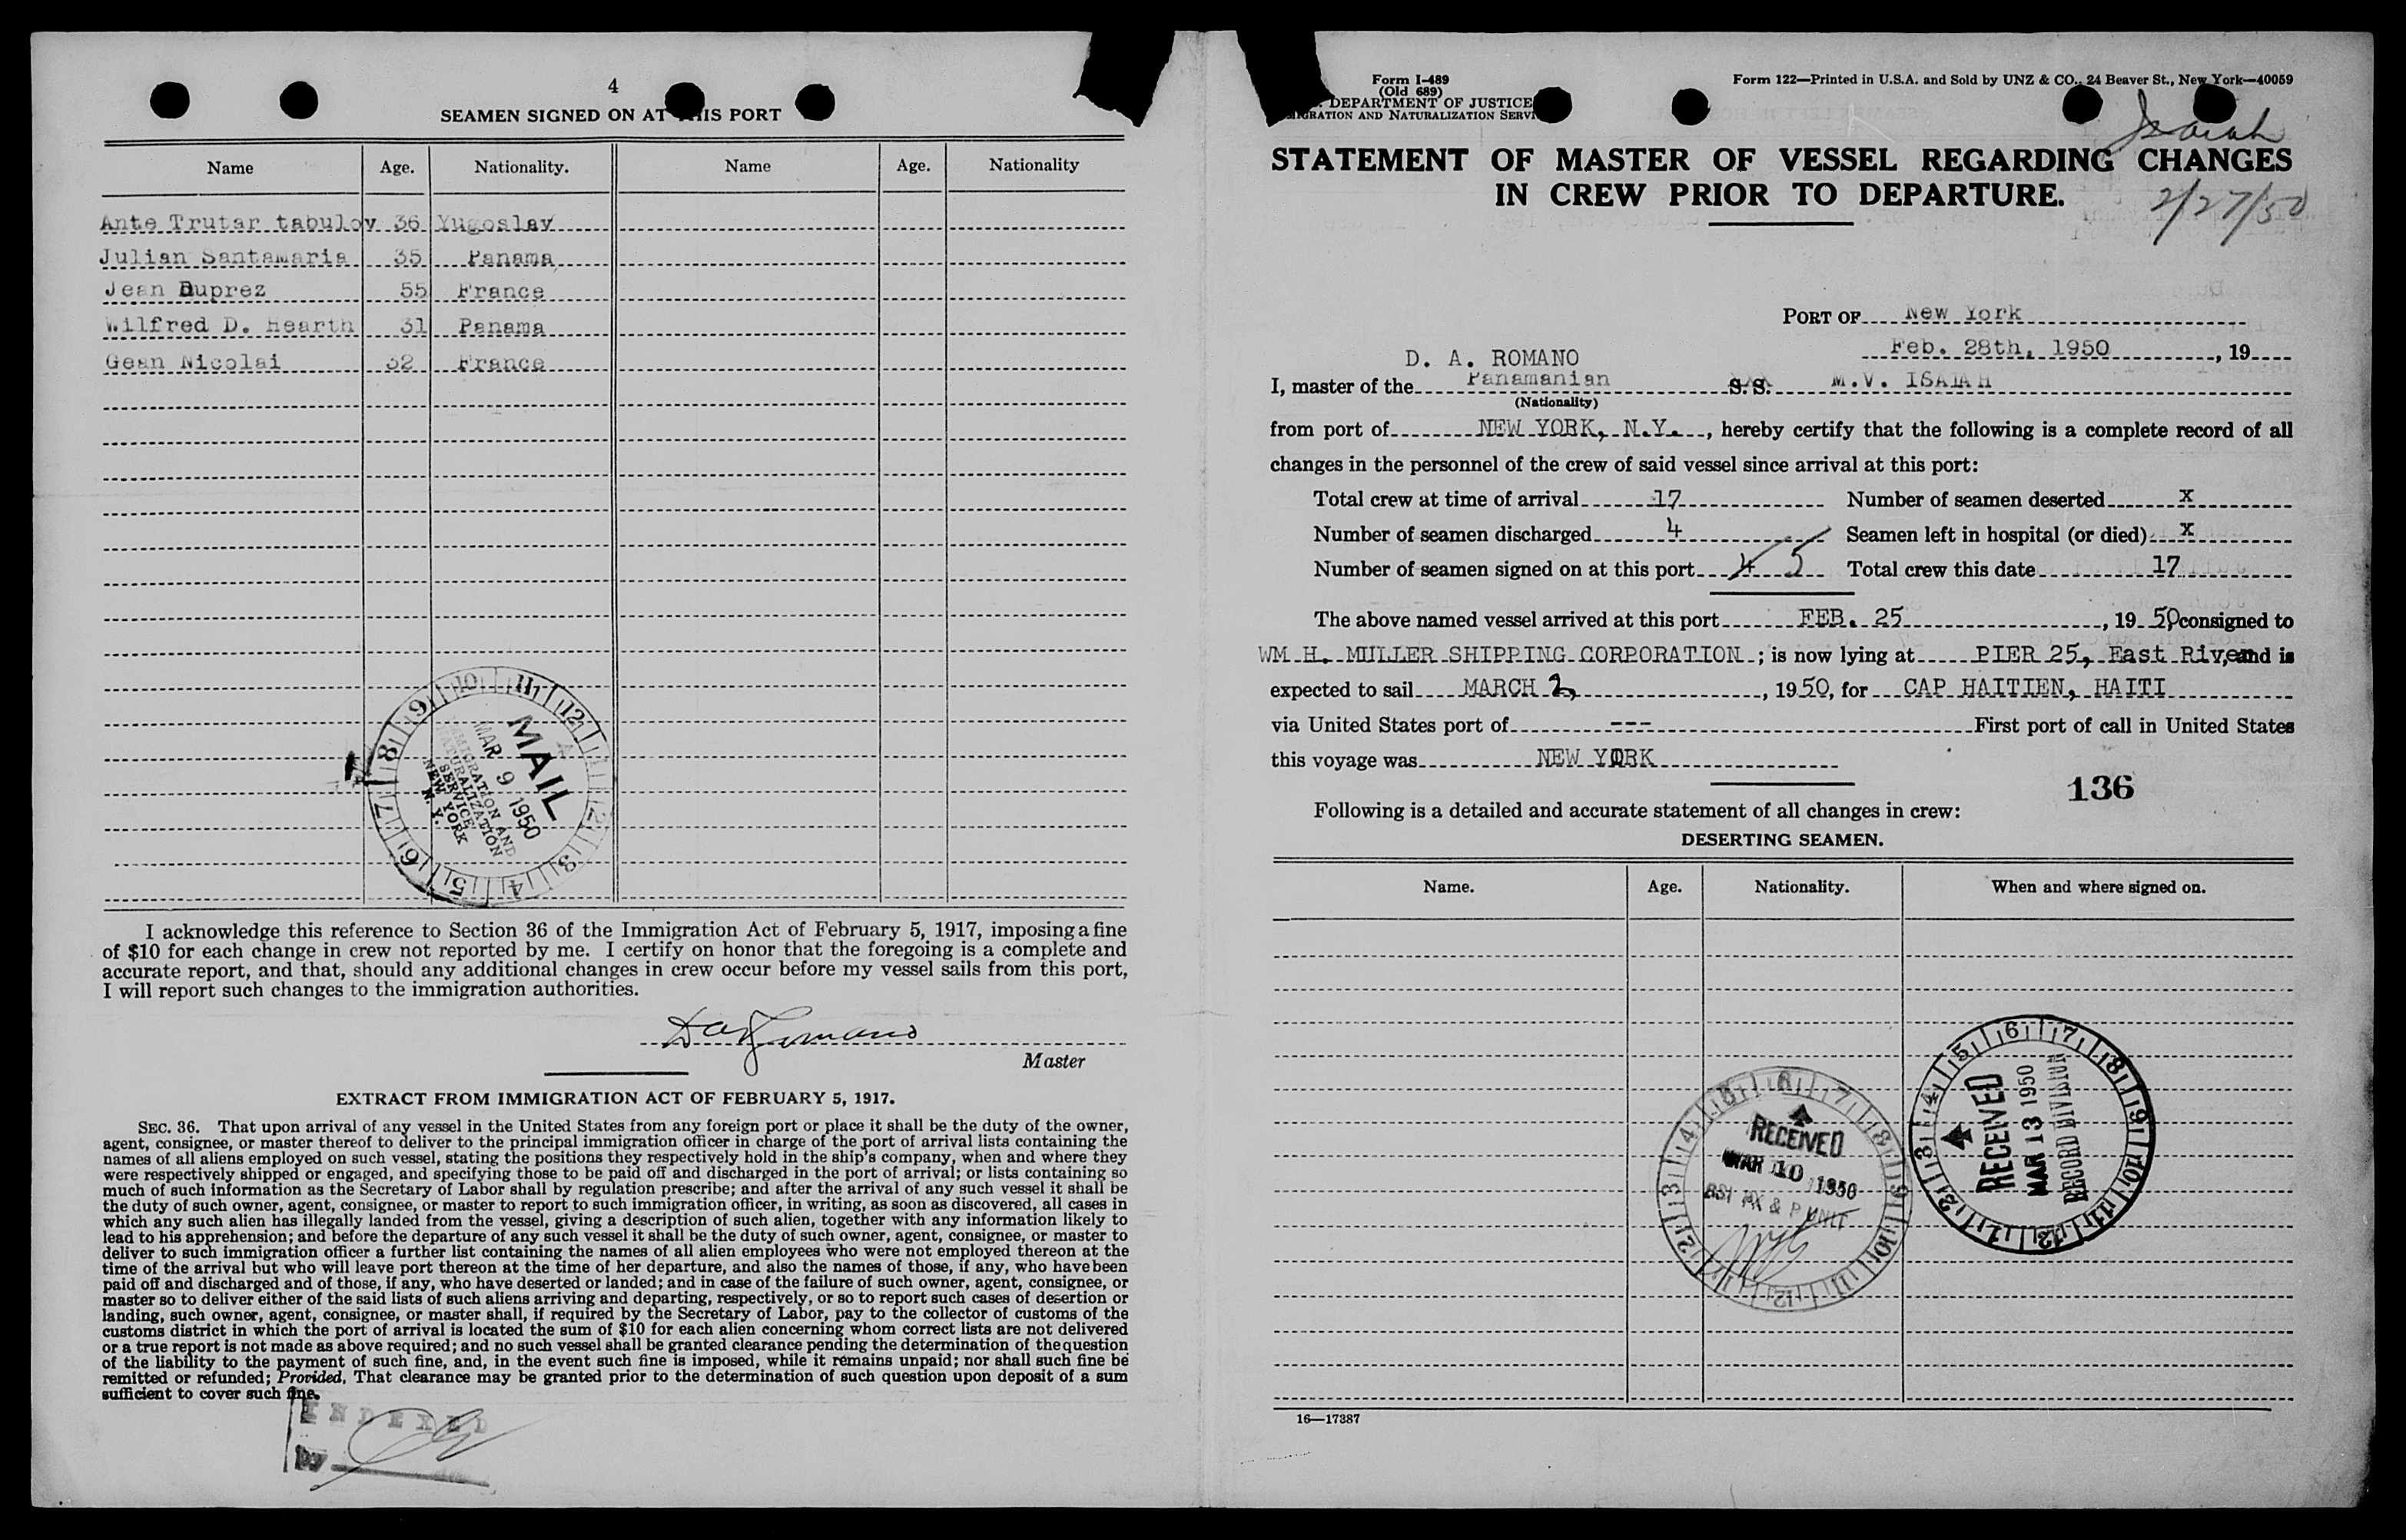 4
SEAMEN SIGNED ON AT THIS PORT
Name Age. Nationality. Name Age. Nationality
Ante Trutar tabulov 36 Yugoslav
Julian Santamaria 35 Panama
Jean Duprez 55 France
Wilfred D. Hearth 31 Panama
Gean Nicolai 32 France
MAIL
MAR 9 1950
IMMIGRATION AND
NATURALIZATION
SERVICE
NEW YORK
N. Y.
I acknowledge this reference to Section 36 of the Immigration Act of February 5, 1917, imposing a fine
of $10 for each change in crew not reported by me. I certify on honor that the foregoing is a complete and
accurate report, and that, should any additional changes in crew occur before my vessel sails from this port,
I will report such changes to the immigration authorities.
Master
EXTRACT FROM IMMIGRATION ACT OF FEBRUARY 5, 1917.
SEC. 36. That upon arrival of any vessel in the United States from any foreign port or place it shall be the duty of the owner,
agent, consignee, or master thereof to deliver to the principal immigration officer in charge of the port of arrival lists containing the
names of all aliens employed on such vessel, stating the positions they respectively hold in the ship's company, when and where they
were respectively shipped or engaged, and specifying those to be paid off and discharged in the port of arrival; or lists containing so
much of such information as the Secretary of Labor shall by regulation prescribe; and after the arrival of any such vessel it shall be
the duty of such owner, agent, consignee, or master to report to such immigration officer, in writing, as soon as discovered, all cases in
which any such alien has illegally landed from the vessel, giving a description of such alien, together with any information likely to
lead to his apprehension; and before the departure of any such vessel it shall be the duty of such owner, agent, consignee, or master to
deliver to such immigration officer a further list containing the names of all alien employees who were not employed thereon at the
time of the arrival but who will leave port thereon at the time of her departure, and also the names of those, if any, who have been
paid off and discharged and of those, if any, who have deserted or landed; and in case of the failure of such owner, agent, consignee, or
master so to deliver either of the said lists of such aliens arriving and departing, respectively, or so to report such cases of desertion or
landing, such owner, agent, consignee, or master shall, if required by the Secretary of Labor, pay to the collector of customs of the
customs district in which the port of arrival is located the sum of $10 for each alien concerning whom correct lists are not delivered
or a true report is not made as above required; and no such vessel shall be granted clearance pending the determination of the question
of the liability to the payment of such fine, and, in the event such fine is imposed, while it remains unpaid; nor shall such fine be
remitted or refunded; Provided, That clearance may be granted prior to the determination of such question upon deposit of a sum
sufficient to cover such fine.
INDEXED
by
Form I-489
(Old 689)
DEPARTMENT OF JUSTICE
IMMIGRATION AND NATURALIZATION SERVICE
Form 122—Printed in U.S.A. and Sold by UNZ & CO., 24 Beaver St., New York—40059
Isaiah
STATEMENT OF MASTER OF VESSEL REGARDING CHANGES
IN CREW PRIOR TO DEPARTURE.
2/27/50
PORT OF New York
Feb. 28th, 1950, 19
D. A. ROMANO
I, master of the Panamanian S. S. M.V. ISAIAH
(Nationality)
from port of NEW YORK, N.Y., hereby certify that the following is a complete record of all
changes in the personnel of the crew of said vessel since arrival at this port:
Total crew at time of arrival 17 Number of seamen deserted x
Number of seamen discharged 4 Seamen left in hospital (or died) x
Number of seamen signed on at this port 4 5 Total crew this date 17
The above named vessel arrived at this port FEB. 25, 19 50 consigned to
WM H. MULLER SHIPPING CORPORATION; is now lying at PIER 25, East River, and is
expected to sail MARCH 2, 1950, for CAP HAITIEN, HAITI
via United States port of --- First port of call in United States
this voyage was NEW YORK
136
Following is a detailed and accurate statement of all changes in crew:
DESERTING SEAMEN.
Name. Age. Nationality. When and where signed on.
RECEIVED
MAR 10 1950
RECEIVED
MAR 13 1950
RECORD DIVISION
16—17387